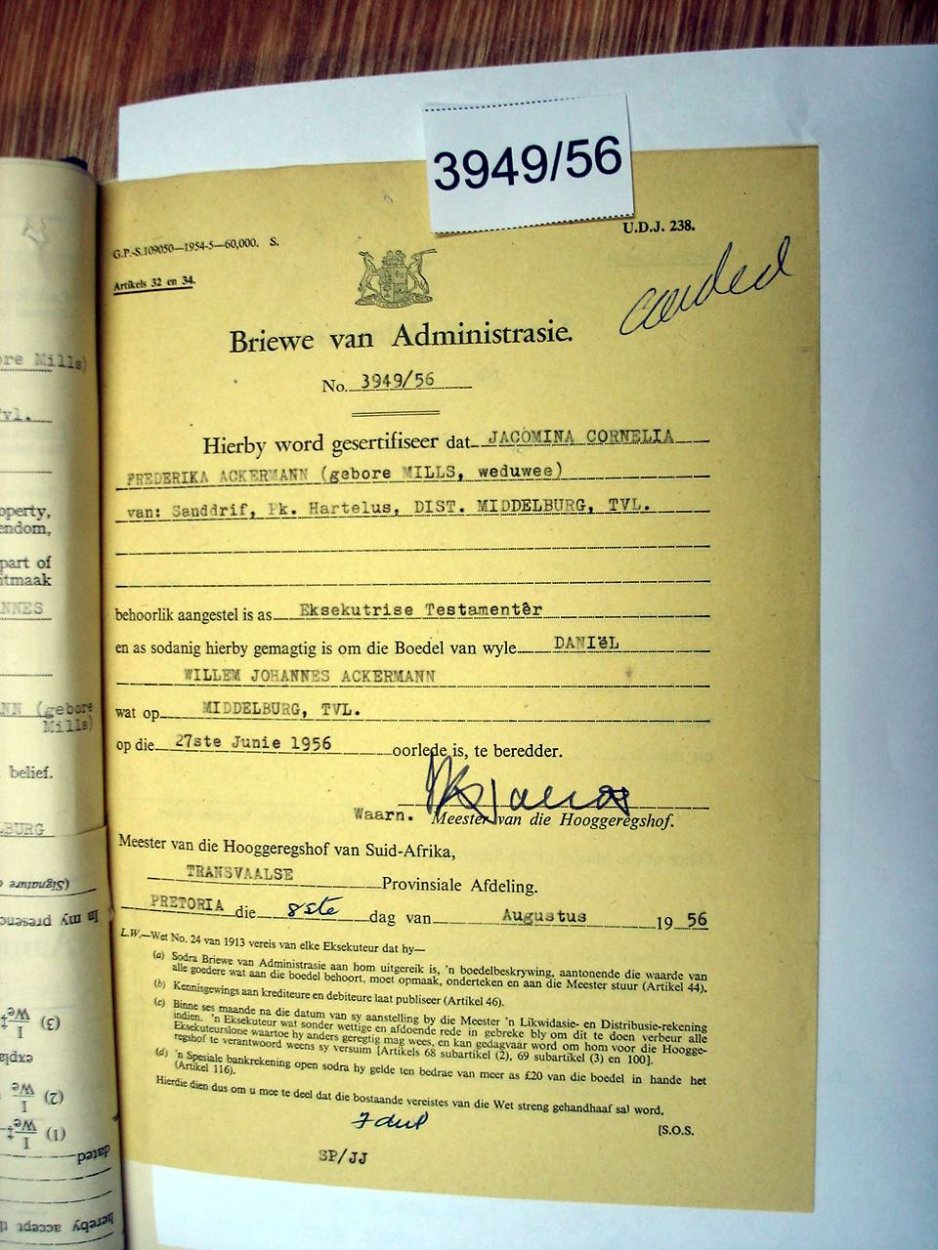 3949/56
U.D.J. 238.
G.P.-S.109050—1954-5—60,000. S.
Artikels 32 en 34.
Briewe van Administrasie.
No. 3949/56
Hierby word gesertifiseer dat JACOMINA CORNELIA
FREDERIKA ACKERMANN (gebore MILLS, weduwee)
van: Sanddrif, Pk. Hartelus, DIST. MIDDELBURG, TVL.
behoorlik aangestel is as Eksekutrise Testamentêr
en as sodanig hierby gemagtig is om die Boedel van wyle DANIëL
WILLEM JOHANNES ACKERMANN
wat op MIDDELBURG, TVL.
op die 27ste Junie 1956 oorlede is, te beredder.
Waarn. Meester van die Hooggeregshof.
Meester van die Hooggeregshof van Suid-Afrika,
TRANSVAALSE Provinsiale Afdeling.
PRETORIA die 8ste dag van Augustus 19 56
L.W.—Wet No. 24 van 1913 vereis van elke Eksekuteur dat hy—
(a) Sodra Briewe van Administrasie aan hom uitgereik is, 'n boedelbeskrywing, aantonende die waarde van
alle goedere wat aan die boedel behoort, moet opmaak, onderteken en aan die Meester stuur (Artikel 44).
(b) Kennisgewings aan krediteure en debiteure laat publiseer (Artikel 46).
(c) Binne ses maande na die datum van sy aanstelling by die Meester 'n Likwidasie- en Distribusie-rekening
indien. 'n Eksekuteur wat sonder wettige en afdoende rede in gebreke bly om dit te doen verbeur alle
Eksekuteurslone waartoe hy anders geregtig mag wees, en kan gedagvaar word om hom voor die Hoogge-
regshof te verantwoord weens sy versuim [Artikels 68 subartikel (2), 69 subartikel (3) en 100].
(d) 'n Spesiale bankrekening open sodra hy gelde ten bedrae van meer as £20 van die boedel in hande het
(Artikel 116).
Hierdie dien dus om u mee te deel dat die bostaande vereistes van die Wet streng gehandhaaf sal word.
[S.O.S.
SP/JJ
ore Mills)
Tvl.
operty,
endom,
part of
itmaak
NNES
NN (gebore
Mills)
belief.
LBURG
(Signature
In my presence
(3) I We
expla
(2) I We
(1) I We
dated
hereby accept th